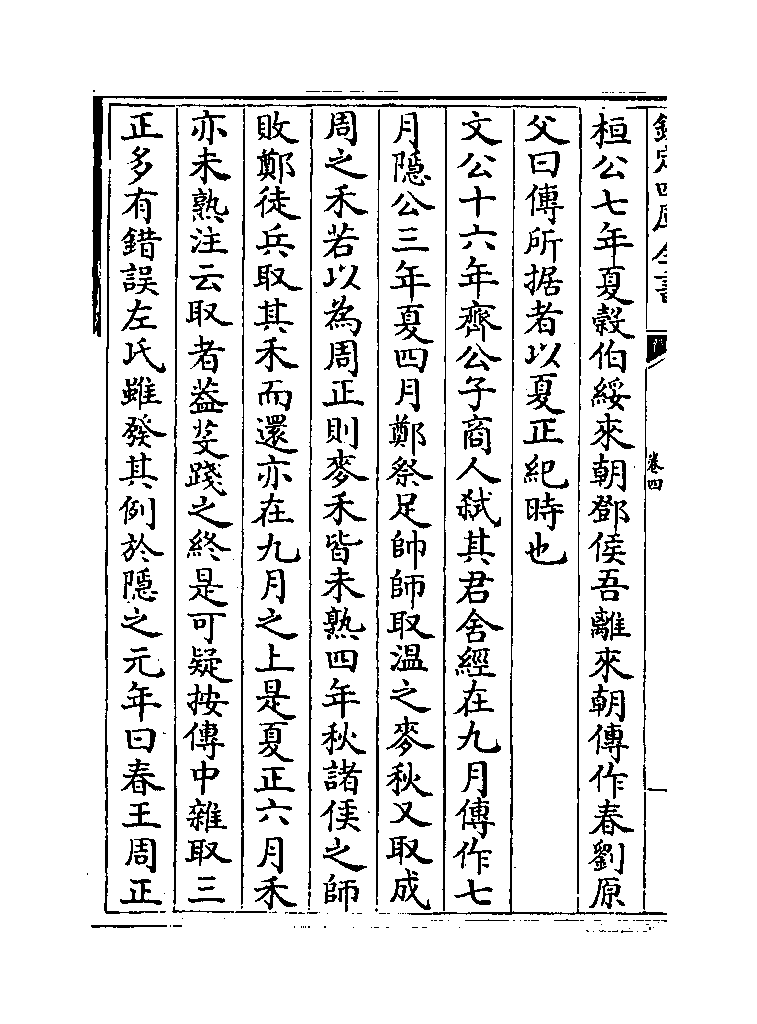 欽定四庫全書
卷四
桓公七年夏穀伯綏來朝鄧侯吾離來朝傳作春劉原
父曰傳所据者以夏正紀時也
文公十六年齊公子商人弑其君舍經在九月傳作七
月隱公三年夏四月鄭祭足帥師取温之麥秋又取成
周之禾若以為周正則麥禾皆未熟四年秋諸侯之師
敗鄭徒兵取其禾而還亦在九月之上是夏正六月禾
亦未熟注云取者葢芟踐之終是可疑按傳中雜取三
正多有錯誤左氏雖發其例於隱之元年曰春王周正